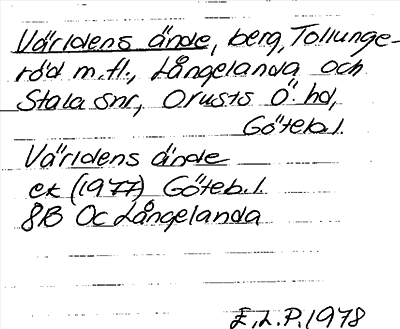 Världens ände, berg, Tollunge-
röd m.fl., Långelanda och
Stala snr, Orusts Ö. hd,
Göteb.l.
Världens ände
ek (1977) Göteb.l.
8B Oc Långelanda
E.L.P. 1978